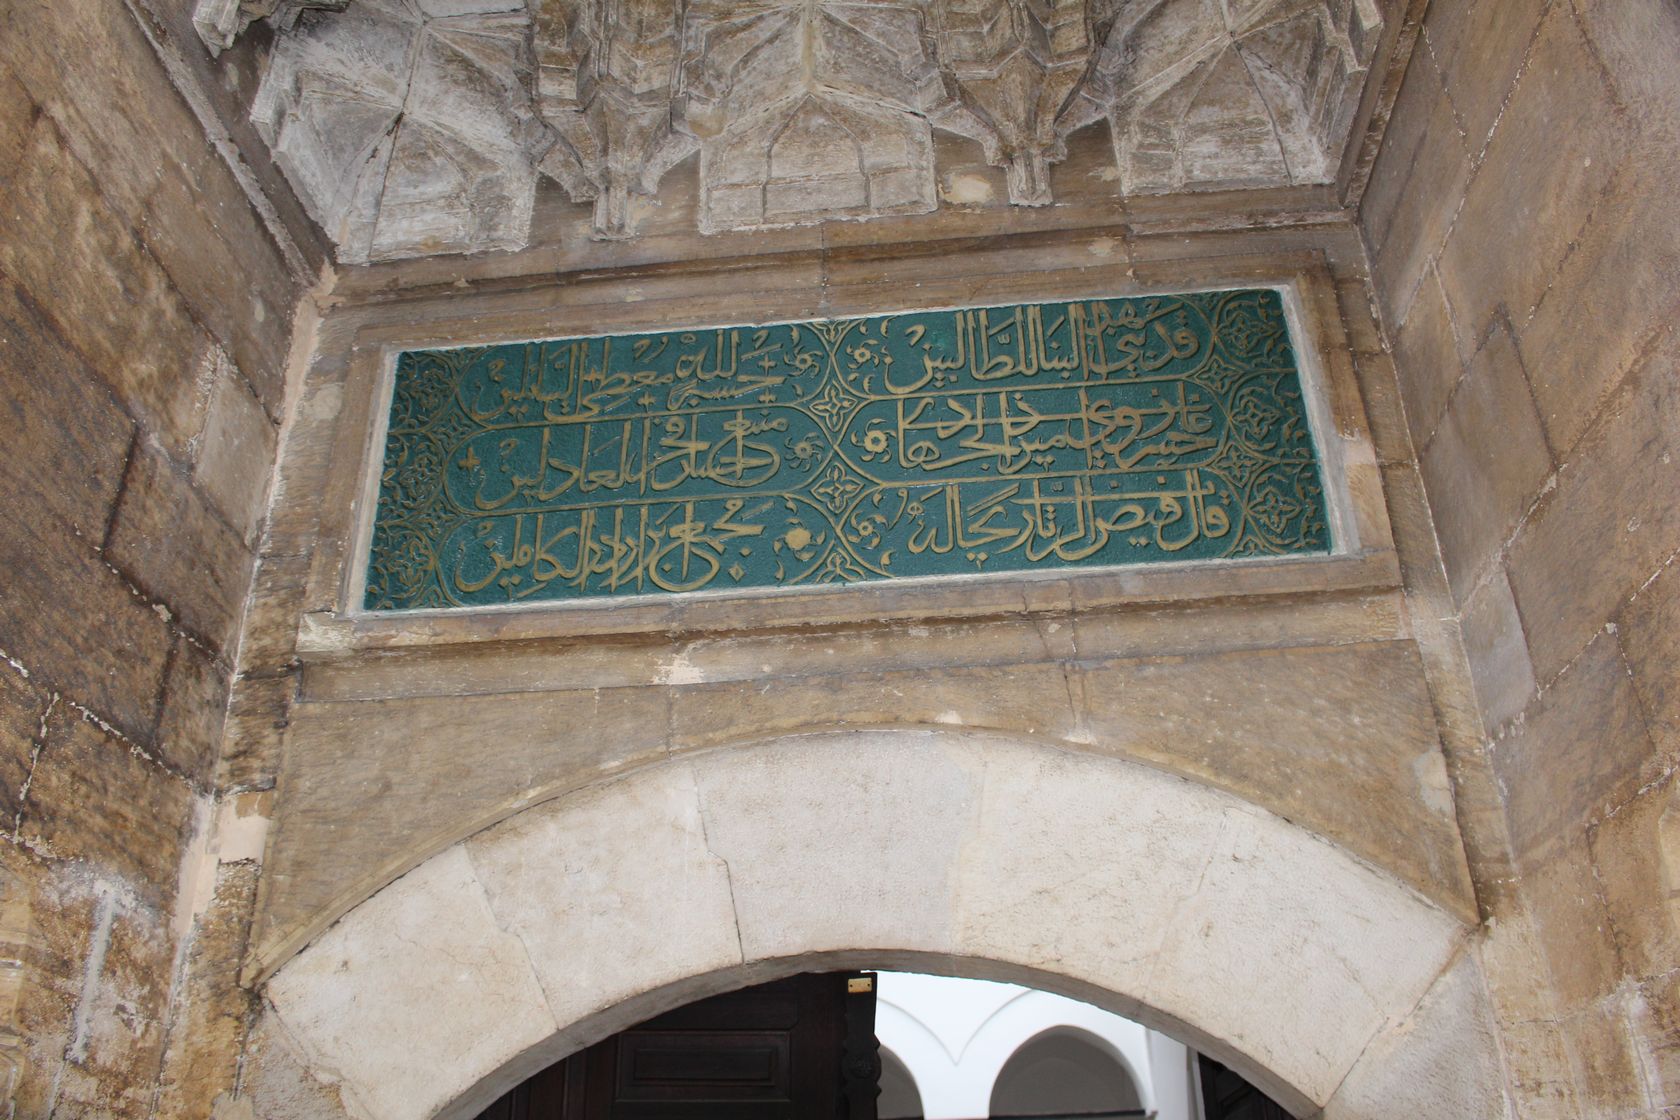 قد بني هذا البنا للطالبين حسبة لله معطي السائلين
غازي خسرو بي مير ذي الجهاد منبع الاحسان فخر العادلين
قال فيض الرب تاريخا له مجمع ابرار دار الكاملين